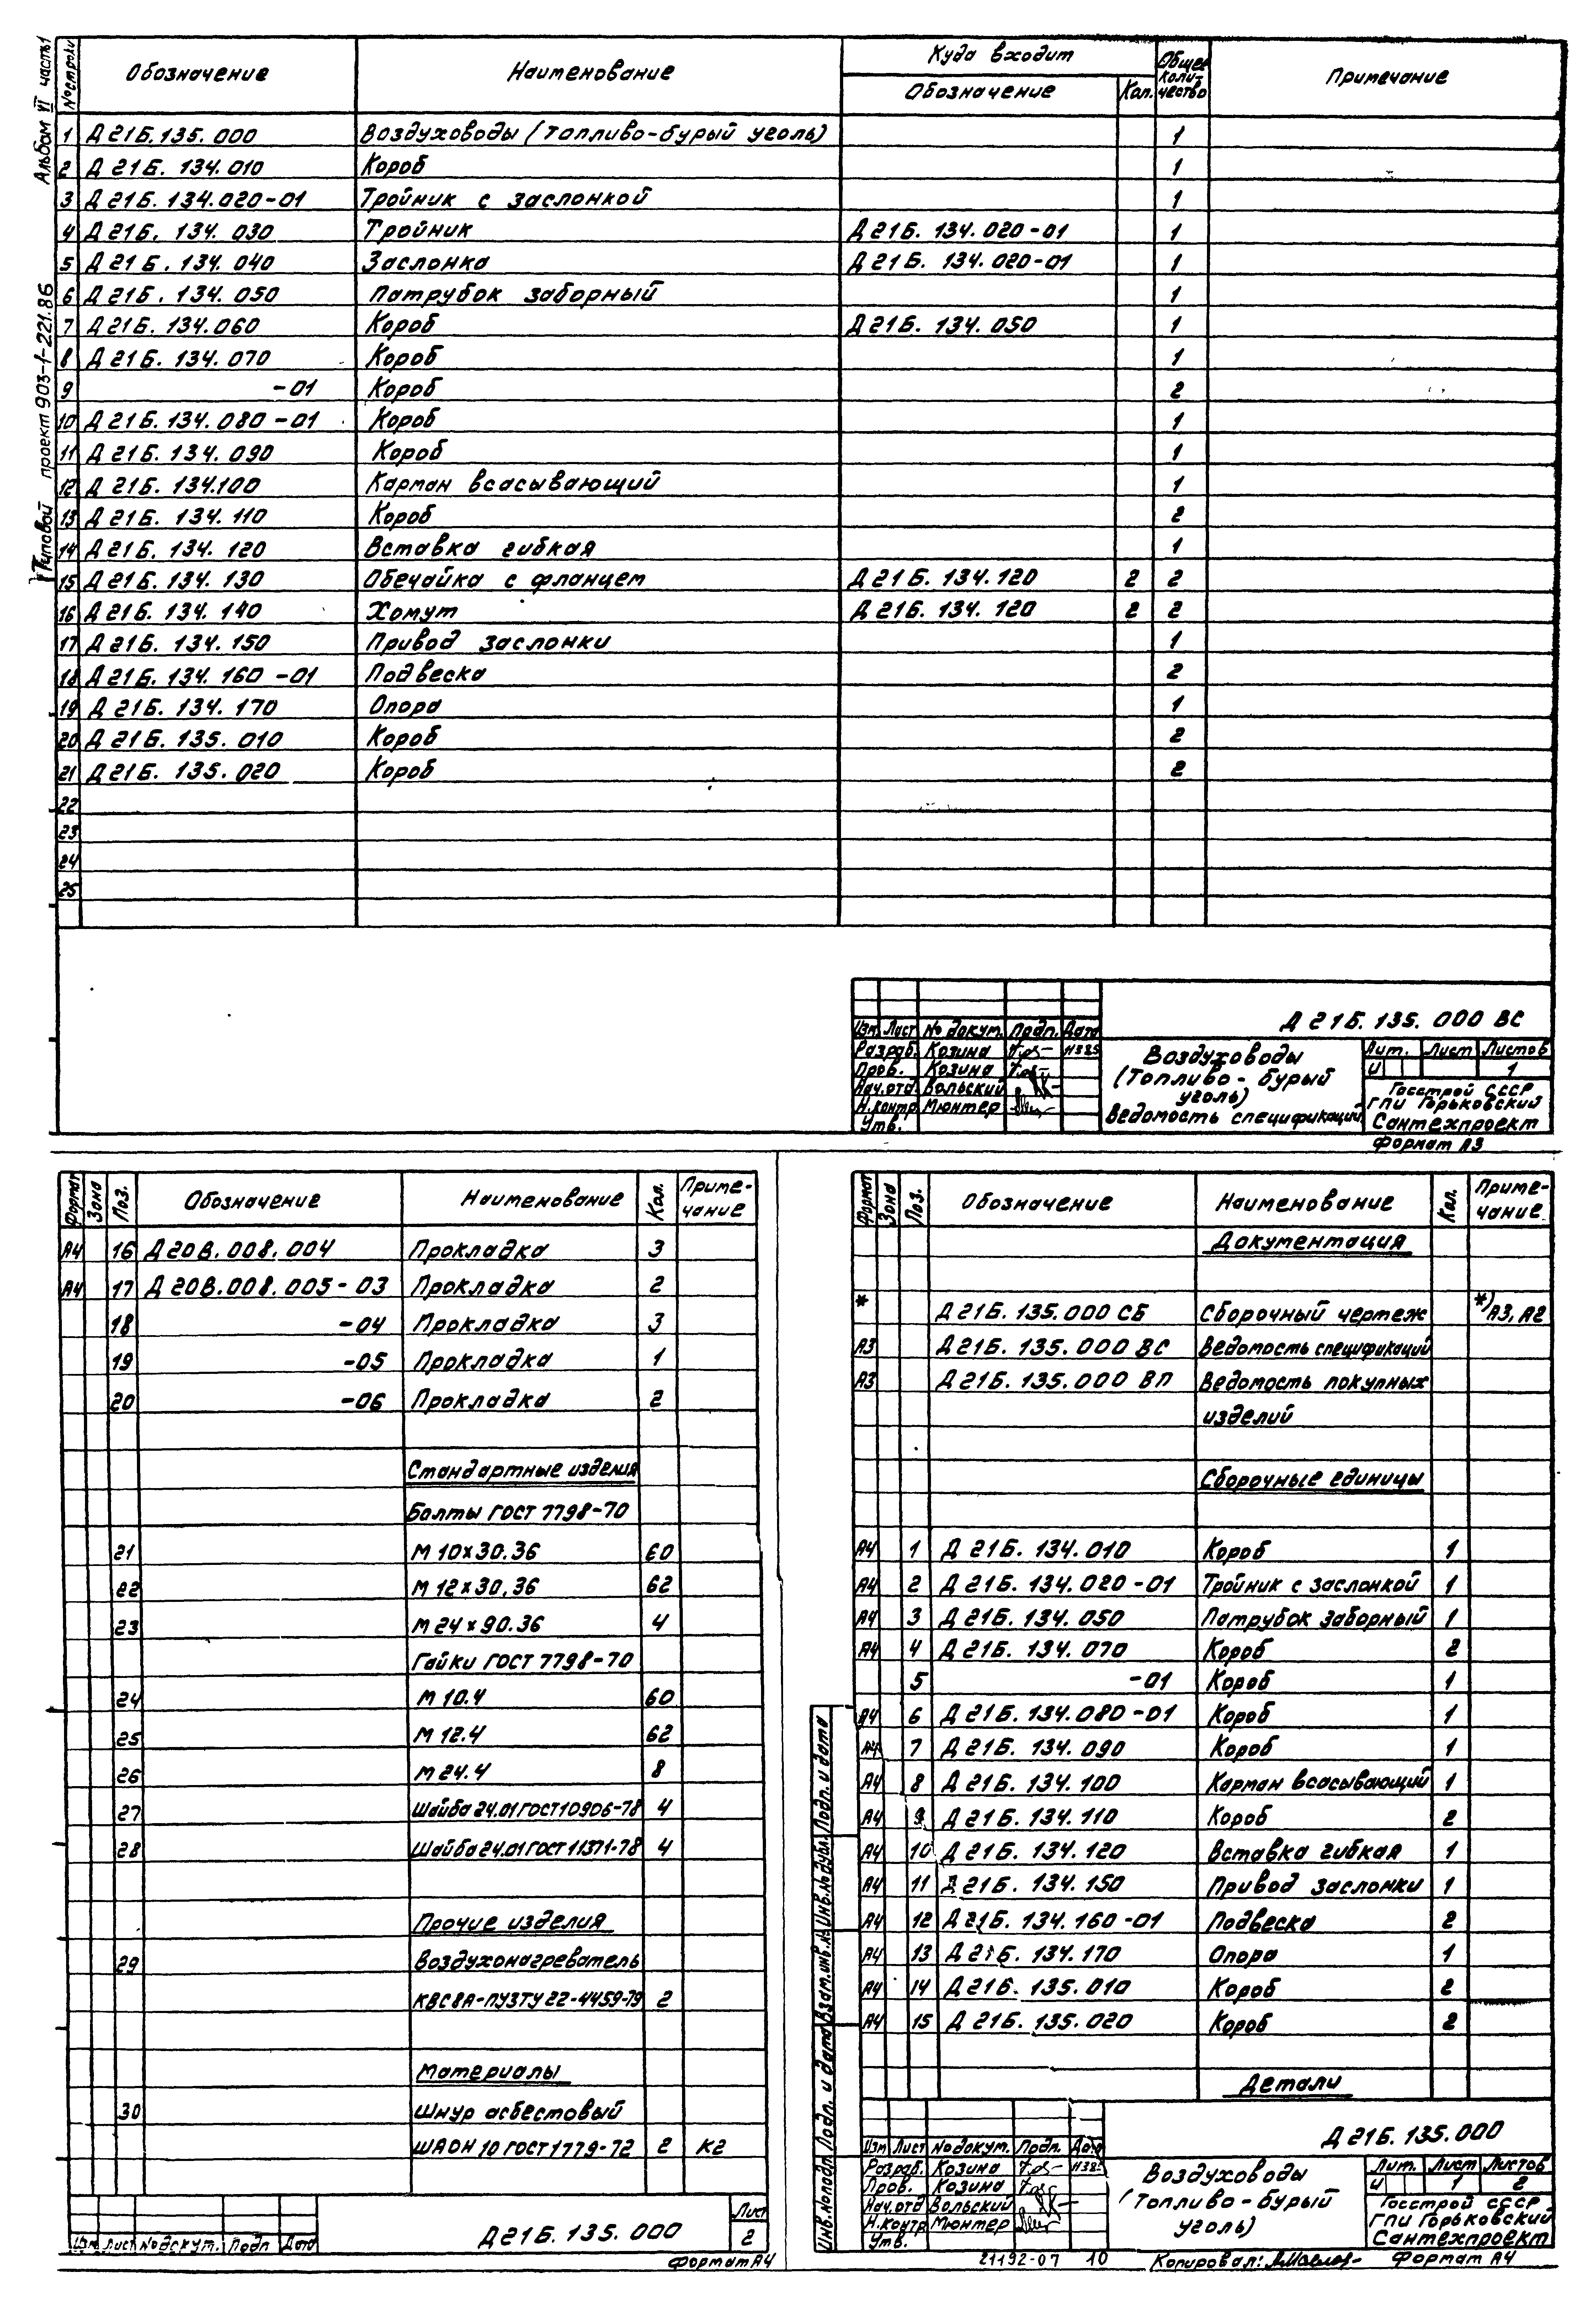 Альбом VI часть 1
Типовой проект 903-1-221.86
№ строки Обозначение Наименование Куда входит Общее количество Примечание
Обозначение Кол.
1 Д21Б.135.000 Воздуховоды (топливо-бурый уголь) 1
2 Д21Б.134.010 Короб 1
3 Д21Б.134.020-01 Тройник с заслонкой 1
4 Д21Б.134.030 Тройник Д21Б.134.020-01 1
5 Д21Б.134.040 Заслонка Д21Б.134.020-01 1
6 Д21Б.134.050 Патрубок заборный 1
7 Д21Б.134.060 Короб Д21Б.134.050 1
8 Д21Б.134.070 Короб 1
9 -01 Короб 2
10 Д21Б.134.080-01 Короб 1
11 Д21Б.134.090 Короб 1
12 Д21Б.134.100 Карман всасывающий 1
13 Д21Б.134.110 Короб 2
14 Д21Б.134.120 Вставка гибкая 1
15 Д21Б.134.130 Обечайка с фланцем Д21Б.134.120 2 2
16 Д21Б.134.140 Хомут Д21Б.134.120 2 2
17 Д21Б.134.150 Привод заслонки 1
18 Д21Б.134.160-01 Подвеска 2
19 Д21Б.134.170 Опора 1
20 Д21Б.135.010 Короб 2
21 Д21Б.135.020 Короб 2
22
23
24
25
Д21Б.135.000 ВС
Изм. Лист № докум. Подп. Дата
Разраб. Козина
Пров. Козина
Нач.отд. Вольский
Н.контр. Мюнтер
Утв.
Воздуховоды
(Топливо-бурый
уголь)
Ведомость спецификаций
Лит. Лист Листов
И 1
Госстрой СССР
ГПИ Горьковский
Сантехпроект
Формат А3
Формат Зона Поз. Обозначение Наименование Кол. Примечание
А4 16 Д20В.008.004 Прокладка 3
А4 17 Д20В.008.005-03 Прокладка 2
18 -04 Прокладка 3
19 -05 Прокладка 1
20 -06 Прокладка 2
Стандартные изделия
Болты ГОСТ 7798-70
21 М10х30.36 60
22 М12х30.36 62
23 М24х90.36 4
Гайки ГОСТ 7798-70
24 М10.4 60
25 М12.4 62
26 М24.4 8
27 Шайба 24.01 ГОСТ 10906-78 4
28 Шайба 24.01 ГОСТ 11371-78 4
Прочие изделия
29 Воздухонагреватель
КВС8А-ПУЗТУ 22-4459-79 2
Материалы
30 Шнур асбестовый
ШАОН 10 ГОСТ 1779-72 2 К2
Изм. Лист № докум. Подп. Дата
Д21Б.135.000
Лист
2
Формат А4
Формат Зона Поз. Обозначение Наименование Кол. Примечание
Документация
* Д21Б.135.000 СБ Сборочный чертеж *) А3, А2
А3 Д21Б.135.000 ВС Ведомость спецификаций
А3 Д21Б.135.000 ВП Ведомость покупных
изделий
Сборочные единицы
А4 1 Д21Б.134.010 Короб 1
А4 2 Д21Б.134.020-01 Тройник с заслонкой 1
А4 3 Д21Б.134.050 Патрубок заборный 1
А4 4 Д21Б.134.070 Короб 2
5 -01 Короб 1
А4 6 Д21Б.134.080-01 Короб 1
А4 7 Д21Б.134.090 Короб 1
А4 8 Д21Б.134.100 Карман всасывающий 1
А4 9 Д21Б.134.110 Короб 2
А4 10 Д21Б.134.120 Вставка гибкая 1
А4 11 Д21Б.134.150 Привод заслонки 1
А4 12 Д21Б.134.160-01 Подвеска 2
А4 13 Д21Б.134.170 Опора 1
А4 14 Д21Б.135.010 Короб 2
А4 15 Д21Б.135.020 Короб 2
Детали
Инв.№подл. Подп. и дата Взам.инв.№ Инв.№дубл. Подп. и дата
Д21Б.135.000
Изм Лист № докум. Подп. Дата
Разраб. Козина
Пров. Козина
Нач.отд Вольский
Н.контр Мюнтер
Утв.
Воздуховоды
(Топливо-бурый
уголь)
Лит. Лист Листов
И 1 2
Госстрой СССР
ГПИ Горьковский
Сантехпроект
21192-07 10 Копировал: Формат А4